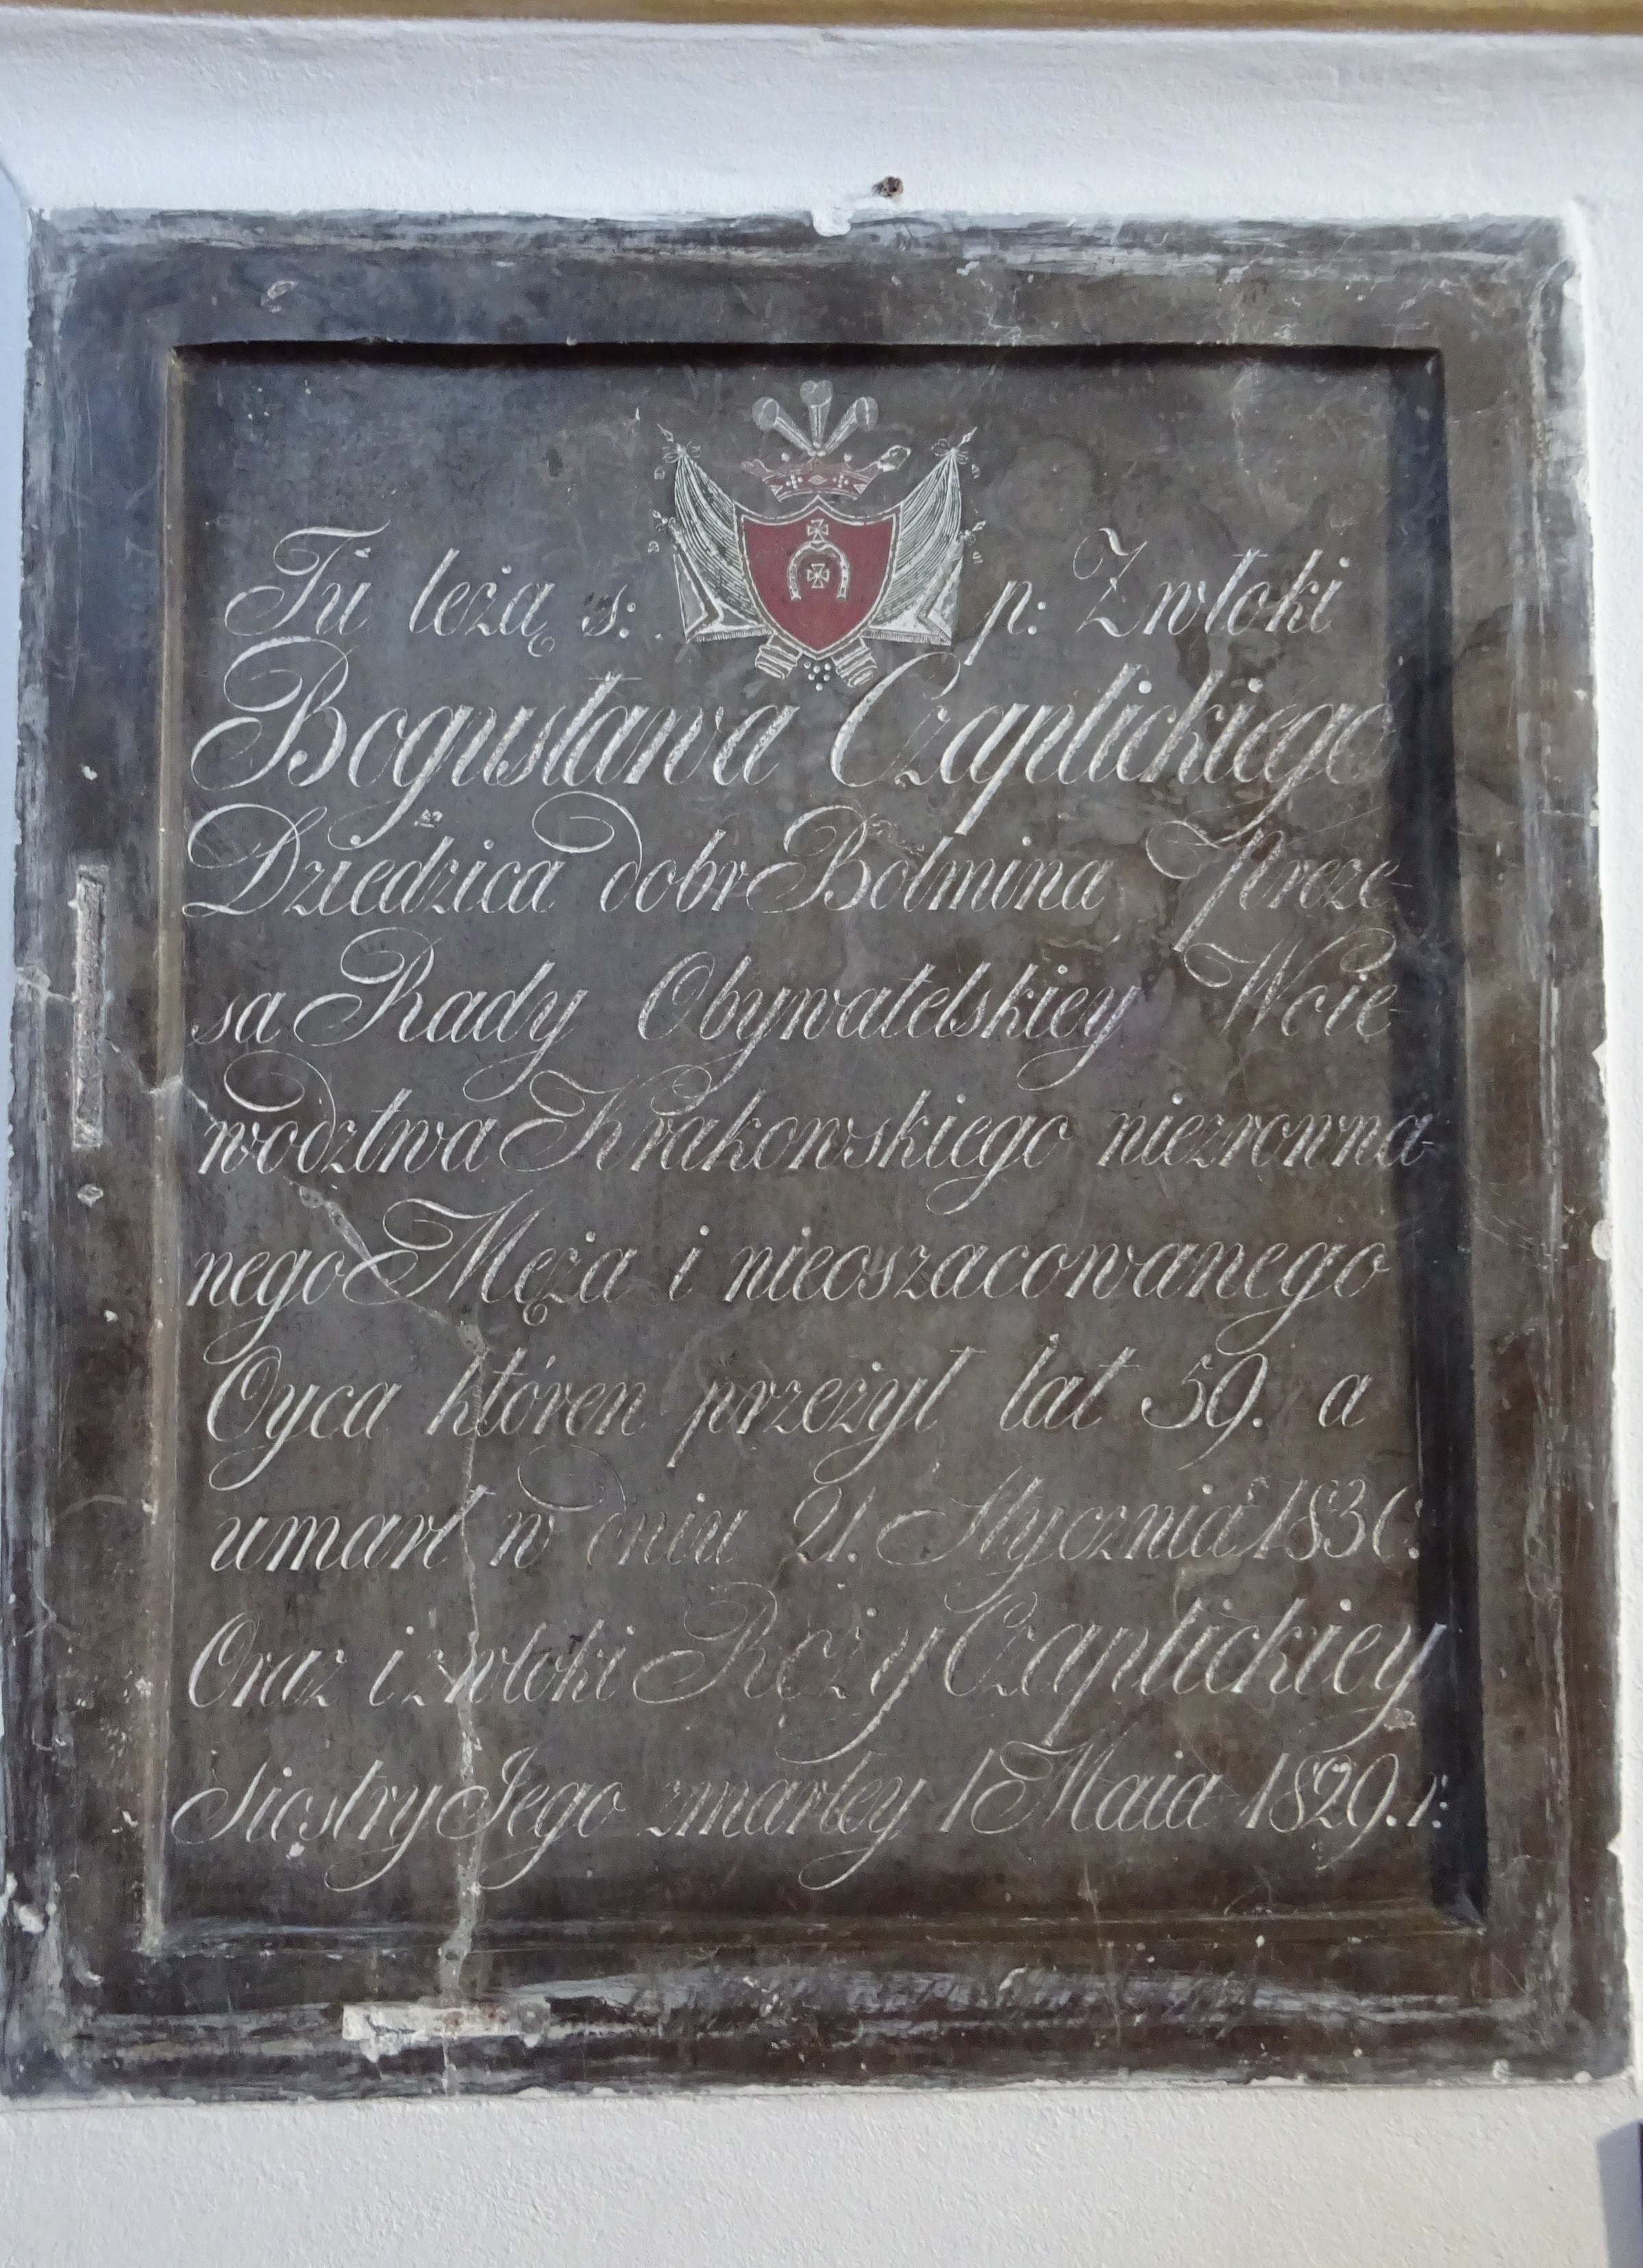 Tu leżą s: p: Zwłoki
Bogusława Czaplickiego
Dziedzica dobr Bolmina Preze-
sa Rady Obywatelskiey Woie-
wodztwa Krakowskiego niezrowna-
nego Męża i nieoszacowanego
Oyca któren przeżył lat 59. a
umarł w dniu 21. Stycznia 1830.
Oraz i zwłoki Rozy Czaplickiey
Siostry Jego zmarłey 1 Maia 1829.r: